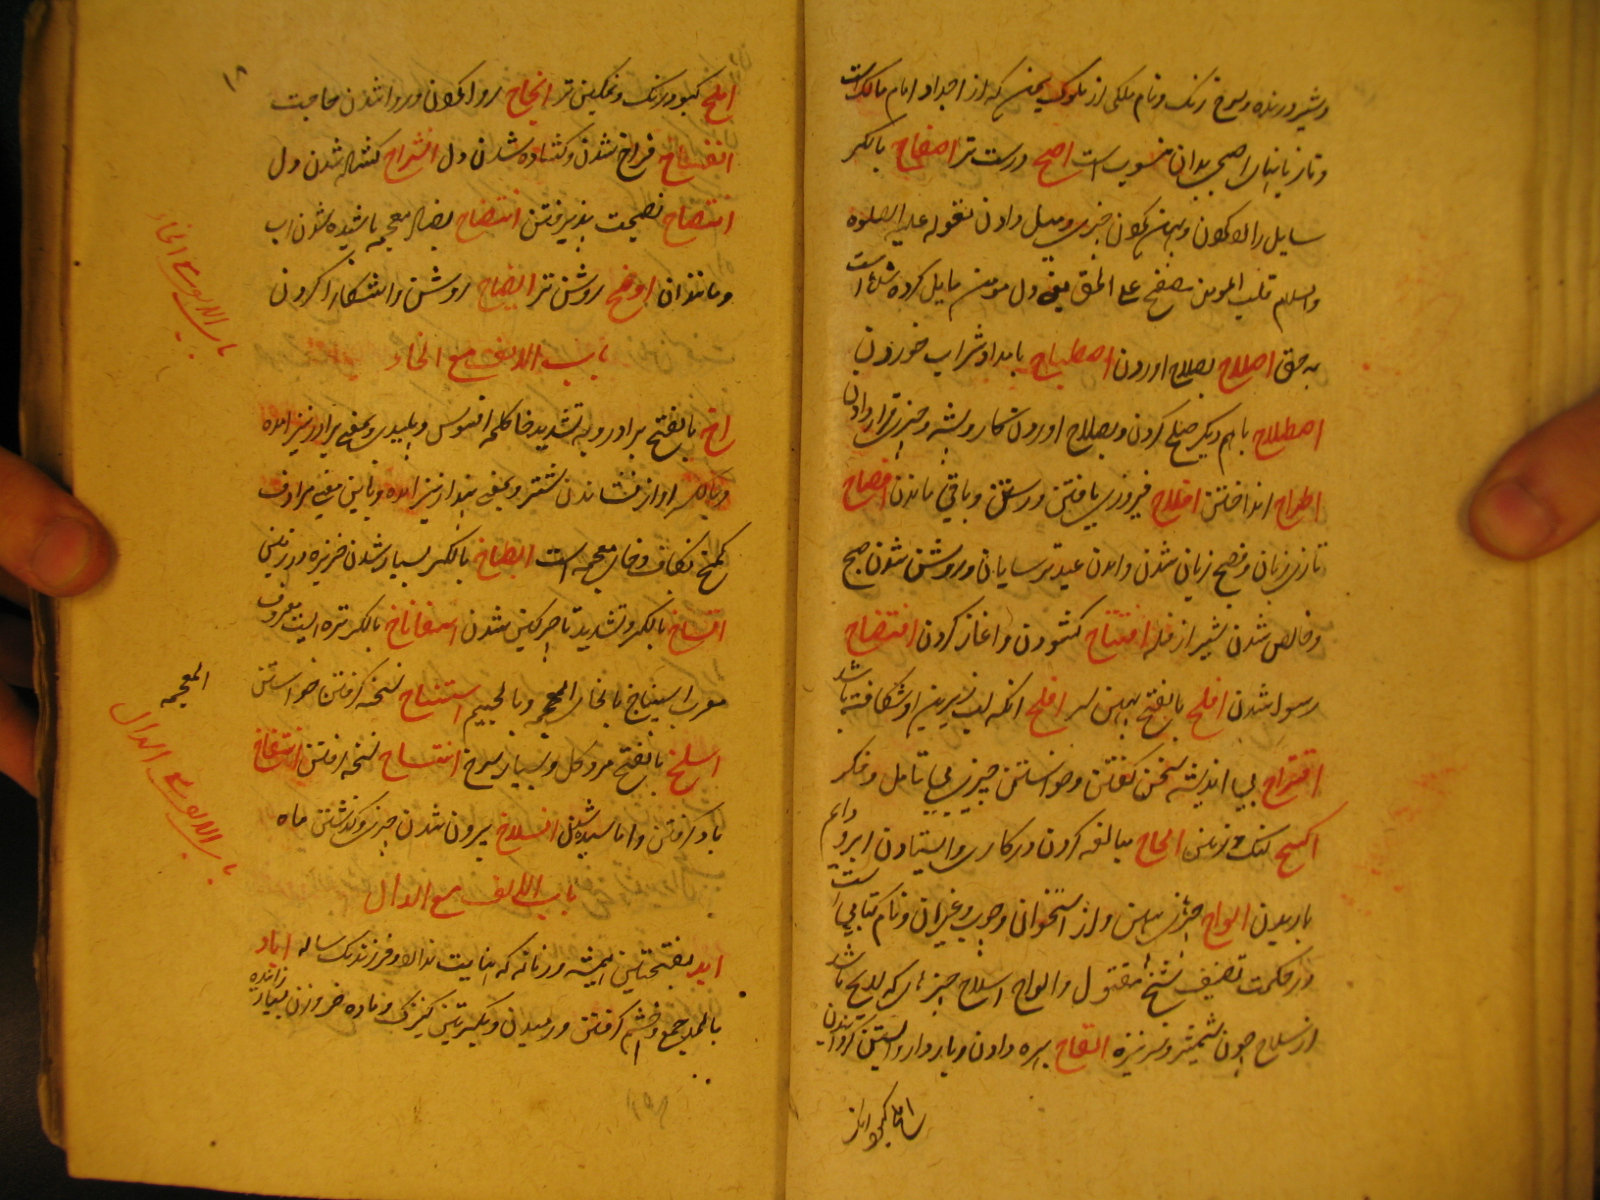 و شیر درنده و سرخ رنگ و نام ملکی از ملوک یمن که از اجداد امام مالک است
و تازیانهای اصبحی بدان منسوب است اصح درست تر اصفاح بالکسر
سایل را رد کردن و پهن کردن چیزی و میل دادن بقوله علیه الصلوة
والسلام قلب المومن مصفح علی الحق یعنی دل مومن مایل کرده شده است
به حق اصلاح بصلاح آوردن اصطباح بامداد شراب خوردن
اصطلاح باهم دیگر صلح کردن و بصلاح آوردن کار و شیء و چیزی قرار دادن
اطراح انداختن افلاح فیروزی یافتن و رستن و باقی ماندن افصاح
تازی زبان و فصیح زبان شدن و آمدن عید ترسایان و روشن شدن صبح
و خالص شدن شیر از فله افتتاح کشودن و آغاز کردن افتضاح
رسوا شدن افلح بالفتح افلح آنکه لب زیرین او شکافته باشد
اقتراح بی اندیشه سخن گفتن و خواستن چیزی بی تامل و فکر
اکسح لنگ الحاح مبالغه کردن در کاری و ایستادن ابر و دایم
باریدن الواح چیزی پهن و از استخوان و چوب و غیر آن و نام کتابی است
در حکمت تصنیف شیخ مقتول و الواح السلاح چیزهای که لایح باشد
از سلاح چون شمشیر و سر نیزه القاح بهره دادن و باردار و آبستن گردانیدن
املح کبود رنگ
۱۸
املح کبود رنگ و نمکین تر انجاح روا کردن و روا شدن حاجت
انفساح فراخ شدن و کشاده شدن دل انشراح کشاده شدن دل
انتصاح نصیحت پذیرفتن انتضاح بضاد معجمه پاشیده شدن آب
و مانند آن اوضح روشن تر ایضاح روشن و آشکارا کردن
باب الالف مع الخاء
باب الالف مع الخاء
اخ بالفتح برادر و به تشدید خا کلمه افسوس و پلیدی و بمعنی برادر نیز آمده
و بالکسر آواز نشاندن شتر و بمعنی بینداز نیز آمده و باین معنی مرادف
کخ بکاف و خای معجمه است ابطاخ بالکسر بسیار شدن خربزه در زمین
اتساخ بالکسر و تشدید تا چرکین شدن اسفاناخ بالکسر تره ایست معروف
معرب اسپناج بالخای المعجمه و بالجیم استنساخ نسخه گرفتن خواستن
المعجمه
اسلخ بالفتح مرد کل و بسیار سرخ انتساخ نسخه گرفتن انتفاخ
باد گرفتن و آماسیده شدن انسلاخ بیرون شدن چیزی و گذشتن ماه
باب الالف مع الدال
باب الالف مع الدال
ابد بفتحتین همیشه و زمانه که نهایت ندارد و فرزند یک ساله اباد
بالمد جمع و خشم گرفتن و رمیدن و بکسرتین کنیزک و ماده خر و زن بسیار زاینده